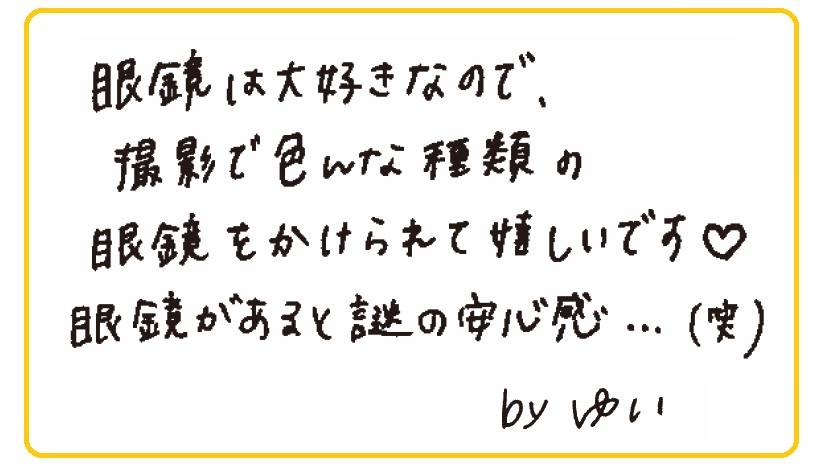 眼鏡は大好きなので、
撮影で色んな種類の
眼鏡をかけられて嬉しいです♡
眼鏡があると謎の安心感…(笑)
by ゆい